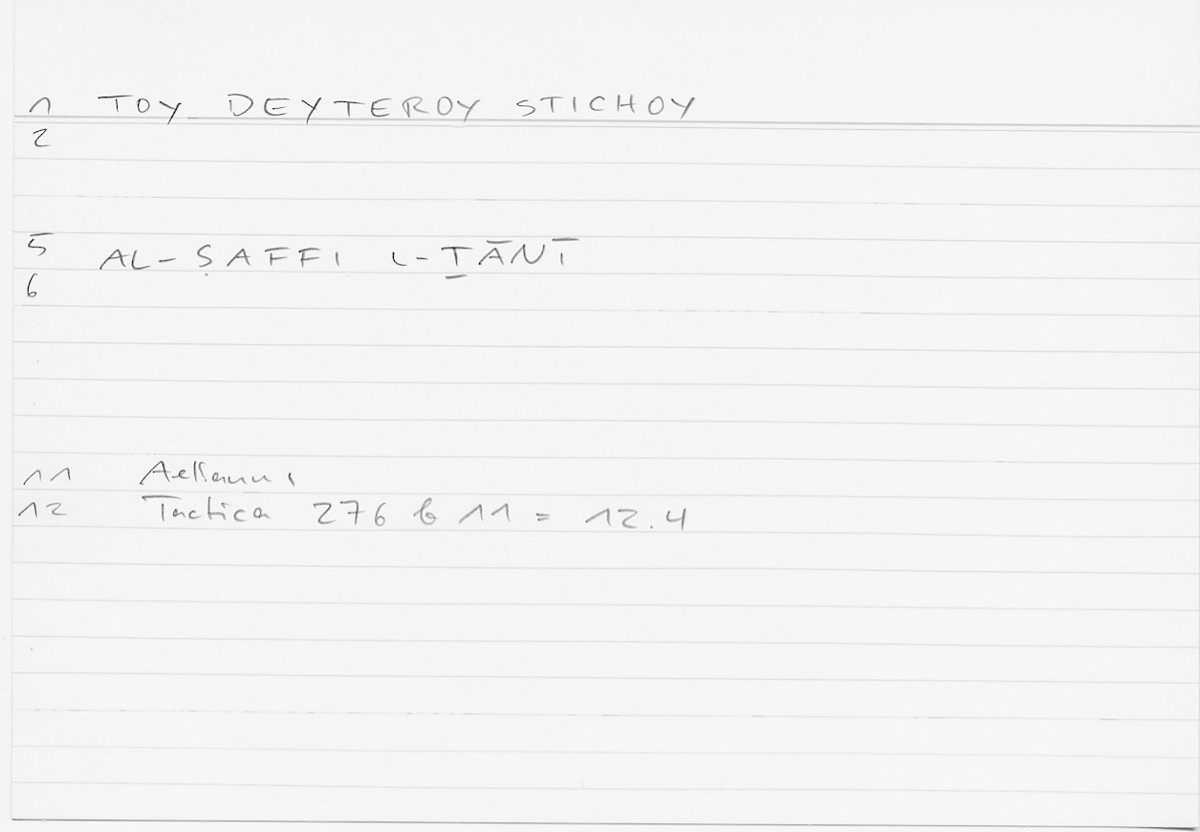 1 TOY DEYTEROY STICHOY
2
5 AL-ṢAFFI L-ṮĀNĪ
6
11 Aelianus
12 Tactica 276 b 11 = 12.4